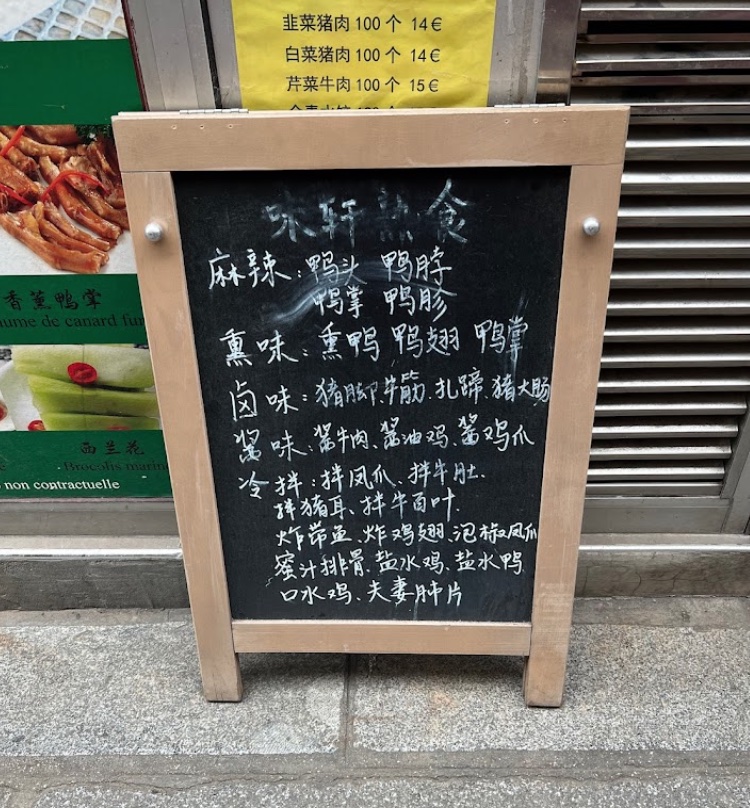 韭菜猪肉 100 个 14€
白菜猪肉 100 个 14€
芹菜牛肉 100 个 15€
味轩熟食
麻辣：鸭头 鸭脖
鸭掌 鸭胗
熏味：熏鸭 鸭翅 鸭掌
卤味：猪脚.牛筋.扎蹄.猪大肠
酱味：酱牛肉、酱油鸡、酱鸡爪
冷拌：拌凤爪、拌牛肚.
拌猪耳、拌牛百叶.
炸带鱼、炸鸡翅.泡椒凤爪
蜜汁排骨、盐水鸡、盐水鸭.
口水鸡、夫妻肺片
香薰鸭掌
aume de canard fu
西兰花
Brocolis marin
non contractuelle